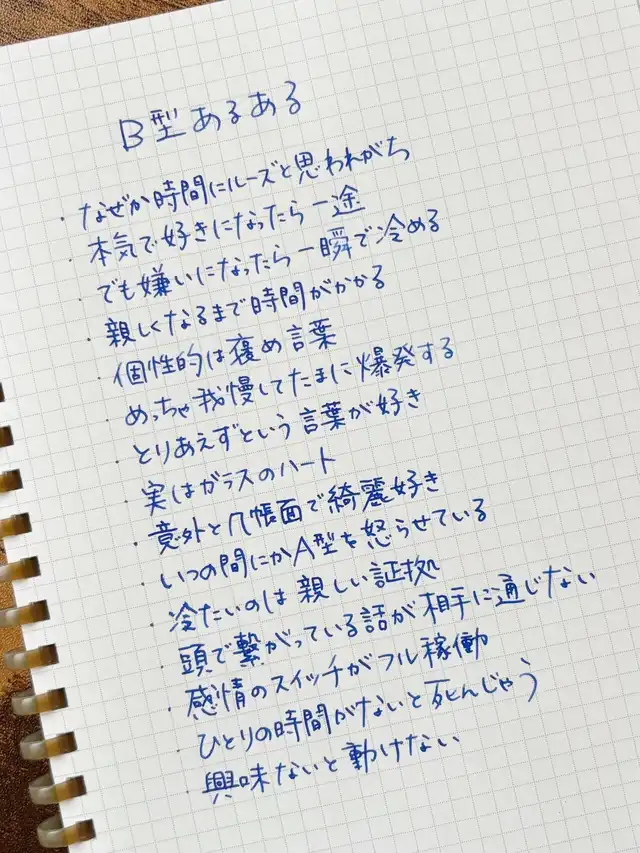 B型あるある
・なぜか時間にルーズと思われがち
・本気で好きになったら一途
・でも嫌いになったら一瞬で冷める
・親しくなるまで時間がかかる
・個性的は褒め言葉
・めっちゃ我慢してたまに爆発する
・とりあえずという言葉が好き
・実はガラスのハート
・意外と几帳面で綺麗好き
・いつの間にかA型を怒らせている
・冷たいのは親しい証拠
・頭で繋がっている話が相手に通じない
・感情のスイッチがフル稼働
・ひとりの時間がないと死んじゃう
・興味ないと動けない